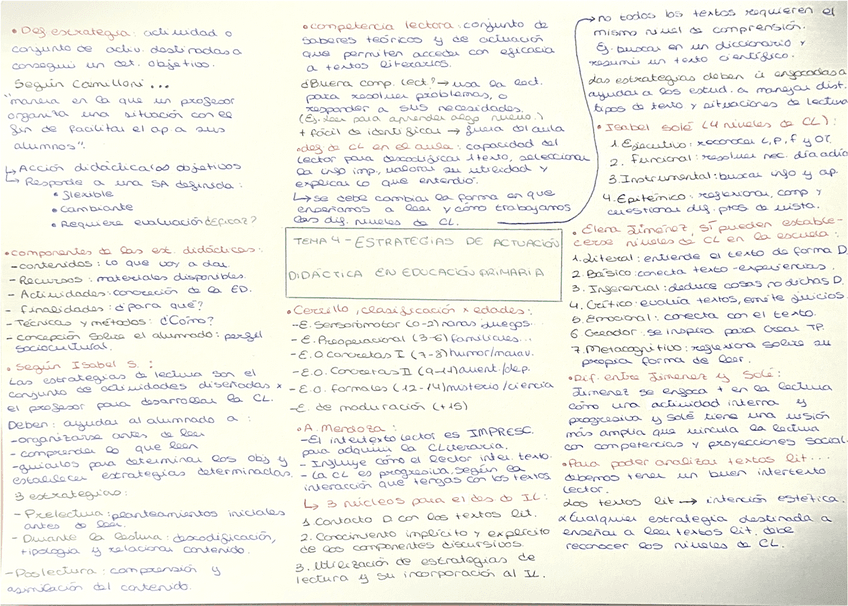 • Def estrategia: actividad o
conjunto de activ. destinadas a
conseguir un det. objetivo.
Según Camilloni...
"manera en la que un profesor
organiza una situación con el
fin de facilitar el ap. a sus
alumnos".
↳ Acción didáctica con objetivos
↳ Responde a una SA definida:
• flexible
• cambiante
• Requiere evaluación ¿Eficaz?
• componentes de las est. didácticas:
- contenidos: lo que voy a dar.
- Recursos: materiales disponibles.
- Actividades: concreción de la ED.
- Finalidades: ¿para qué?
- Técnicas y métodos: ¿Cómo?
- concepción sobre el alumnado: perfil
sociocultural.
• Según Isabel S.:
Las estrategias de lectura son el
conjunto de actividades diseñadas x
el profesor para desarrollar la CL.
Deben: ayudar al alumnado a:
- organizarse antes de leer
- comprender lo que leen
- guiarlos para determinar los obj y
establecer estrategias determinadas.
3 estrategias:
- Prelectura: planteamientos iniciales
antes de leer.
- Durante la lectura: descodificación,
tipología y relacionar contenido.
- Poslectura: comprensión y
asimilación del contenido.
• competencia lectora: conjunto de
saberes teóricos y de actuación
que permiten acceder con eficacia
a textos literarios.
¿Buena comp. lect? → usa la lect.
para resolver problemas, o
responder a sus necesidades.
(Ej. leer para aprender algo nuevo.)
+ fácil de identificar → fuera del aula
• def de CL en el aula: capacidad del
lector para descodificar 1 texto, seleccionar
la info imp, valorar su utilidad y
explicar lo que entendió.
↳ se debe cambiar la forma en que
enseñamos a leer y cómo trabajamos
los dif. niveles de CL.
TEMA 4 - ESTRATEGIAS DE ACTUACIÓN
DIDÁCTICA EN EDUCACIÓN PRIMARIA
• Cerrillo, clasificación x edades:
- E. Sensoriomotor (0-2) nanas juegos.
- E. Preoperacional (3-6) familiares...
- E.O Concretas I (7-8) humor/marav.
- E.O. Concretas II (9-11) avent./dep.
- E.O. formales (12-14) misterio/ciencia
- E. de maduración (+15)
• A. Mendoza:
- El intertexto lector es IMPRESC.
para adquirir la CLiteraria.
- Influye cómo el lector inter. texto.
- La CL es progresiva, según la
interacción que tengas con los textos
↳ 3 núcleos para el des de IL:
1. Contacto D con los textos lit.
2. Conocimiento implícito y explícito
de los componentes discursivos.
3. Utilización de estrategias de
lectura y su incorporación al IL.
→ no todos los textos requieren el
mismo nivel de comprensión.
Ej. buscar en un diccionario y
resumir un texto científico.
Las estrategias deben ir enfocadas a
ayudar a los estud. a manejar dist.
tipos de texto y situaciones de lectura
• Isabel Solé (4 niveles de CL):
1. Ejecutivo: reconocer L, P, F y OT.
2. Funcional: resolver nec. día a día
3. Instrumental: buscar info y ap.
4. Epistémico: reflexionar, comp y
cuestionar dif. ptos de vista.
• Elena Jiménez, sí pueden estable-
cerse niveles de CL en la escuela:
1. Literal: entiende el texto de forma D.
2. Básico: conecta texto - experiencias.
3. Inferencial: deduce cosas no dichas D.
4. Crítico: evalúa textos, emite juicios.
5. Emocional: conecta con el texto.
6. Creador: se inspira para crear TP.
7. Metacognitivo: reflexiona sobre su
propia forma de leer.
• Dif. entre Jimenez y Solé:
Jimenez se enfoca + en la lectura
como una actividad interna y
progresiva y Solé tiene una visión
más amplia que vincula la lectura
con competencias y proyecciones social.
• Para poder analizar textos lit...
debemos tener un buen intertexto
lector.
Los textos lit → intención estética.
* Cualquier estrategia destinada a
enseñar a leer textos lit. debe
reconocer los niveles de CL.